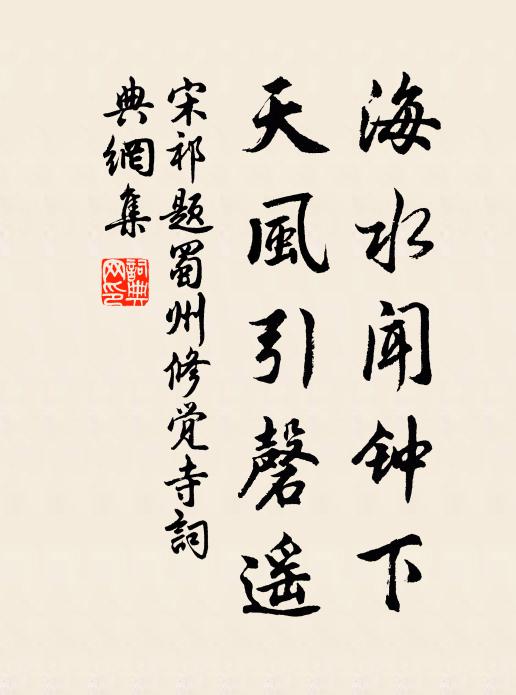 海水闻钟下
天風引磬遥
宋祁题蜀州修觉寺詞
典網集
詞典
网印